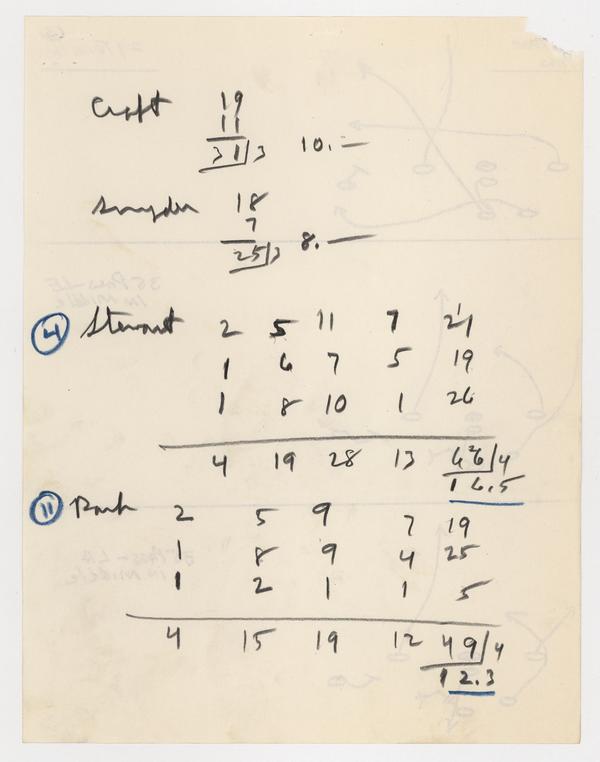 Craft 19
11
31/3 10.—
Snyder 18
7
25/3 8.—
4 Stewart 2 5 11 7 21
1 6 7 5 19
1 8 10 1 26
4 19 28 13 66/4
16.5
11 2 5 9 7 19
1 8 9 4 25
1 2 1 1 5
4 15 19 12 49/4
12.3